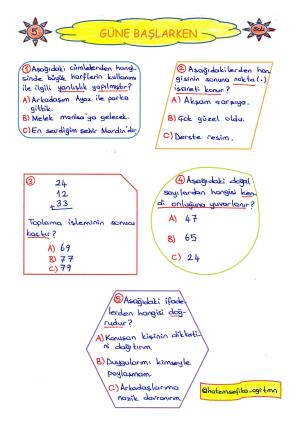 5
GÜNE BAŞLARKEN
Salı
① Aşağıdaki cümlelerden hangi-
sinde büyük harflerin kullanımı
ile ilgili yanlışlık yapılmıştır?
A) Arkadaşım Ayaz ile parka
gittik.
B) Melek manisa'ya gelecek.
C) En sevdiğim şehir Mardin'dir.
② Aşağıdakilerden han-
gisinin sonuna nokta (.)
işareti konur?
A) Akşam çarşıya
B) Çok güzel oldu.
C) Derste resim.
③ 24
12
+33
Toplama işleminin sonucu
kaçtır?
A) 69
B) 77
C) 79
④ Aşağıdaki doğal
sayılardan hangisi ken-
di onluğuna yuvarlanır?
A) 47
B) 65
C) 24
⑤ Aşağıdaki ifade-
lerden hangisi doğ-
rudur?
A) Konuşan kişinin dikkati-
ni dağıtırım.
B) Duygularımı kimseyle
paylaşmam.
C) Arkadaşlarıma
nazik davranırım.